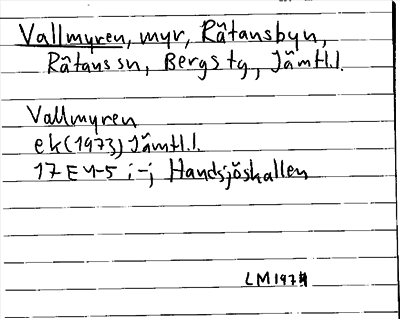 Vallmyren, myr, Rätansbyn,
Rätans sn, Bergs tg, Jämtl.l.
Vallmyren
ek (1973) Jämtl.l.
17 E 4-5 i-j Handsjöskallen
LM 1974